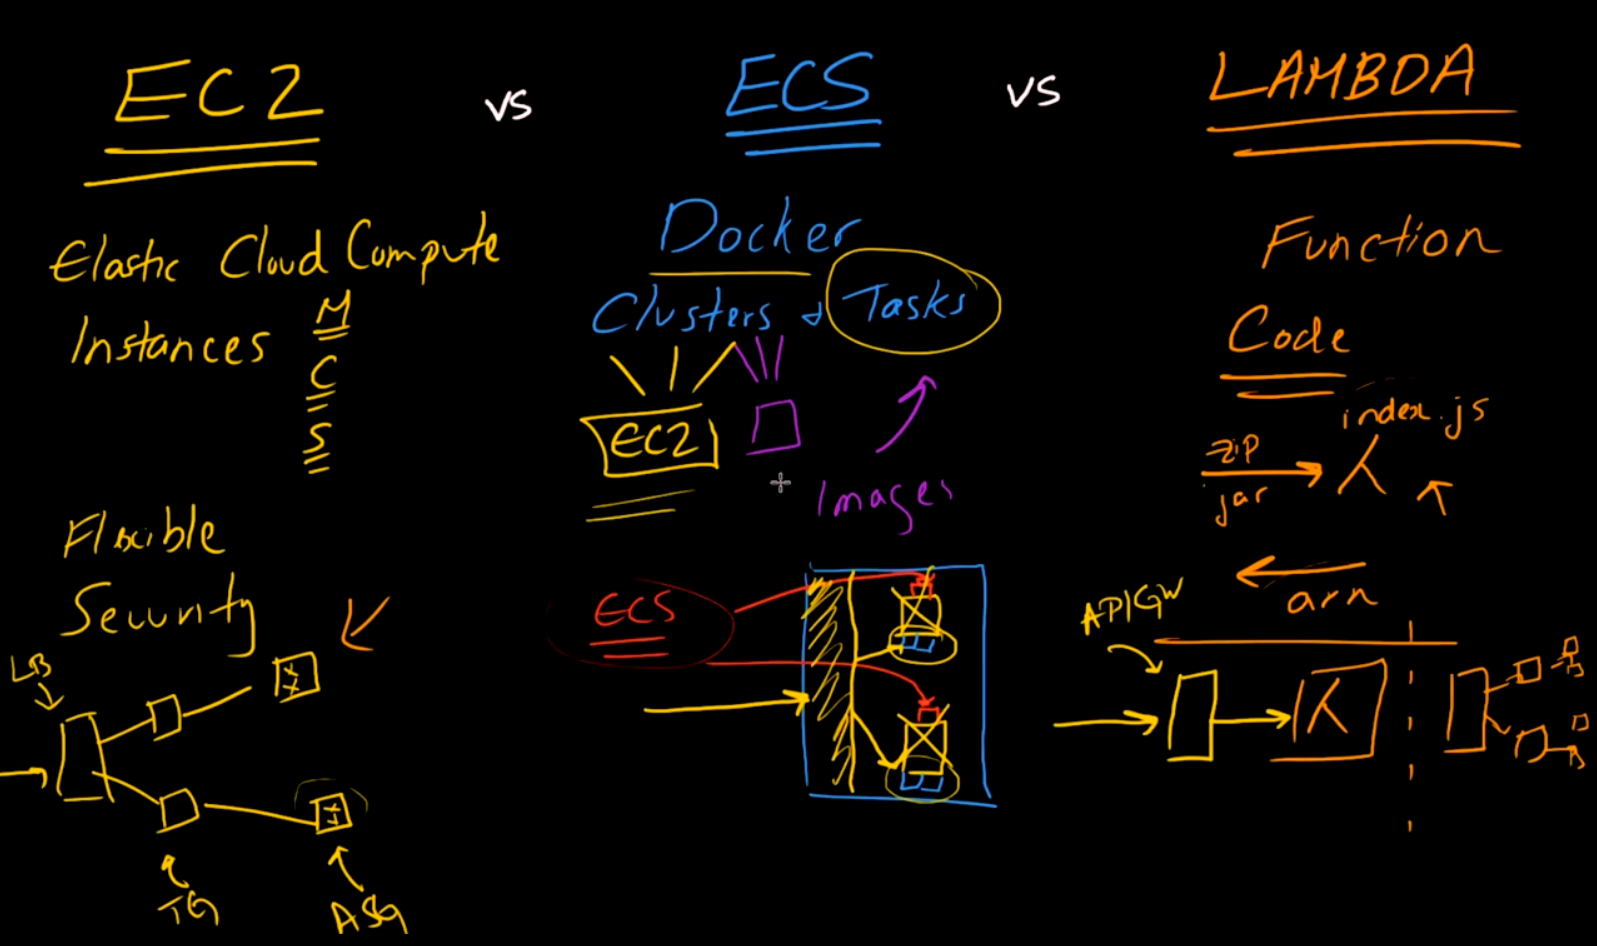 EC2 vs ECS vs LAMBDA
Elastic Cloud Compute
Instances
M
C
S
Flexible
Security
LB
TG
ASG
Docker
Clusters & Tasks
EC2
Images
ECS
Function
Code
index.js
zip
jar
λ
arn
API GW
λ